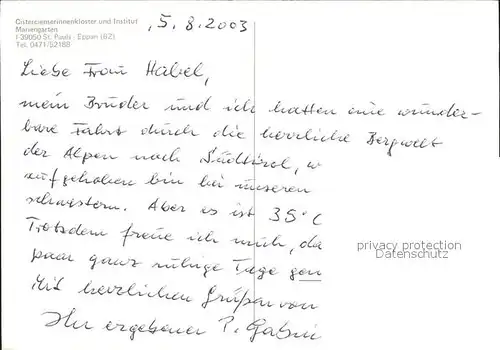 Cistercienserinnenkloster und Institut
Mariengarten
I-39050 St. Pauls · Eppan (BZ)
Tel. 0471/52188
, 5. 8. 2003
Liebe Frau Habel,
mein Bruder und ich hatten eine wunder-
bare Fahrt durch die herrliche Bergwelt
der Alpen nach Südtirol, w
aufgehoben bin bei unseren
schwestern. Aber es ist 35°C
Trotzdem freue ich mich, da
paar ganz ruhige Tage gen
Mit herzlichen Grüßen von
Ihr ergebener P. Gabri
privacy protection
Datenschutz